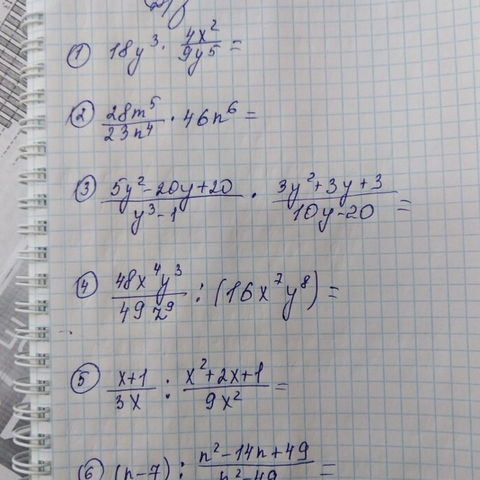 ① 18y³ · 4x²/9y⁵ =
② 28m⁵/23n⁴ · 46n⁶ =
③ (5y²-20y+20)/(y³-1) · (3y²+3y+3)/(10y-20) =
④ 48x⁴y³/49z⁹ : (16x⁷y⁸) =
⑤ (x+1)/3x : (x²+2x+1)/9x² =
⑥ (n-7) : (n²-14n+49)/(n²-49) =